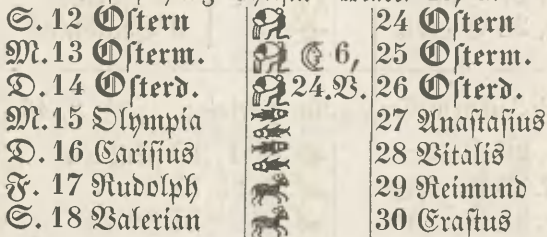 S. 12 Oſtern 24 Oſtern
M. 13 Oſterm. ☾ 6, 25 Oſterm.
D. 14 Oſterd. 24.V. 26 Oſterd.
M. 15 Olympia 27 Anaſtaſius
D. 16 Cariſius 28 Vitalis
F. 17 Rudolph 29 Reimund
S. 18 Valerian 30 Eraſtus